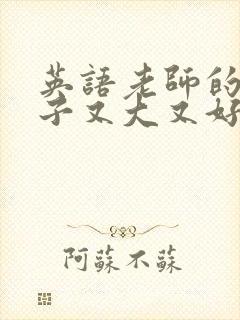 英語老師的
子又大又好
阿蘇不蘇